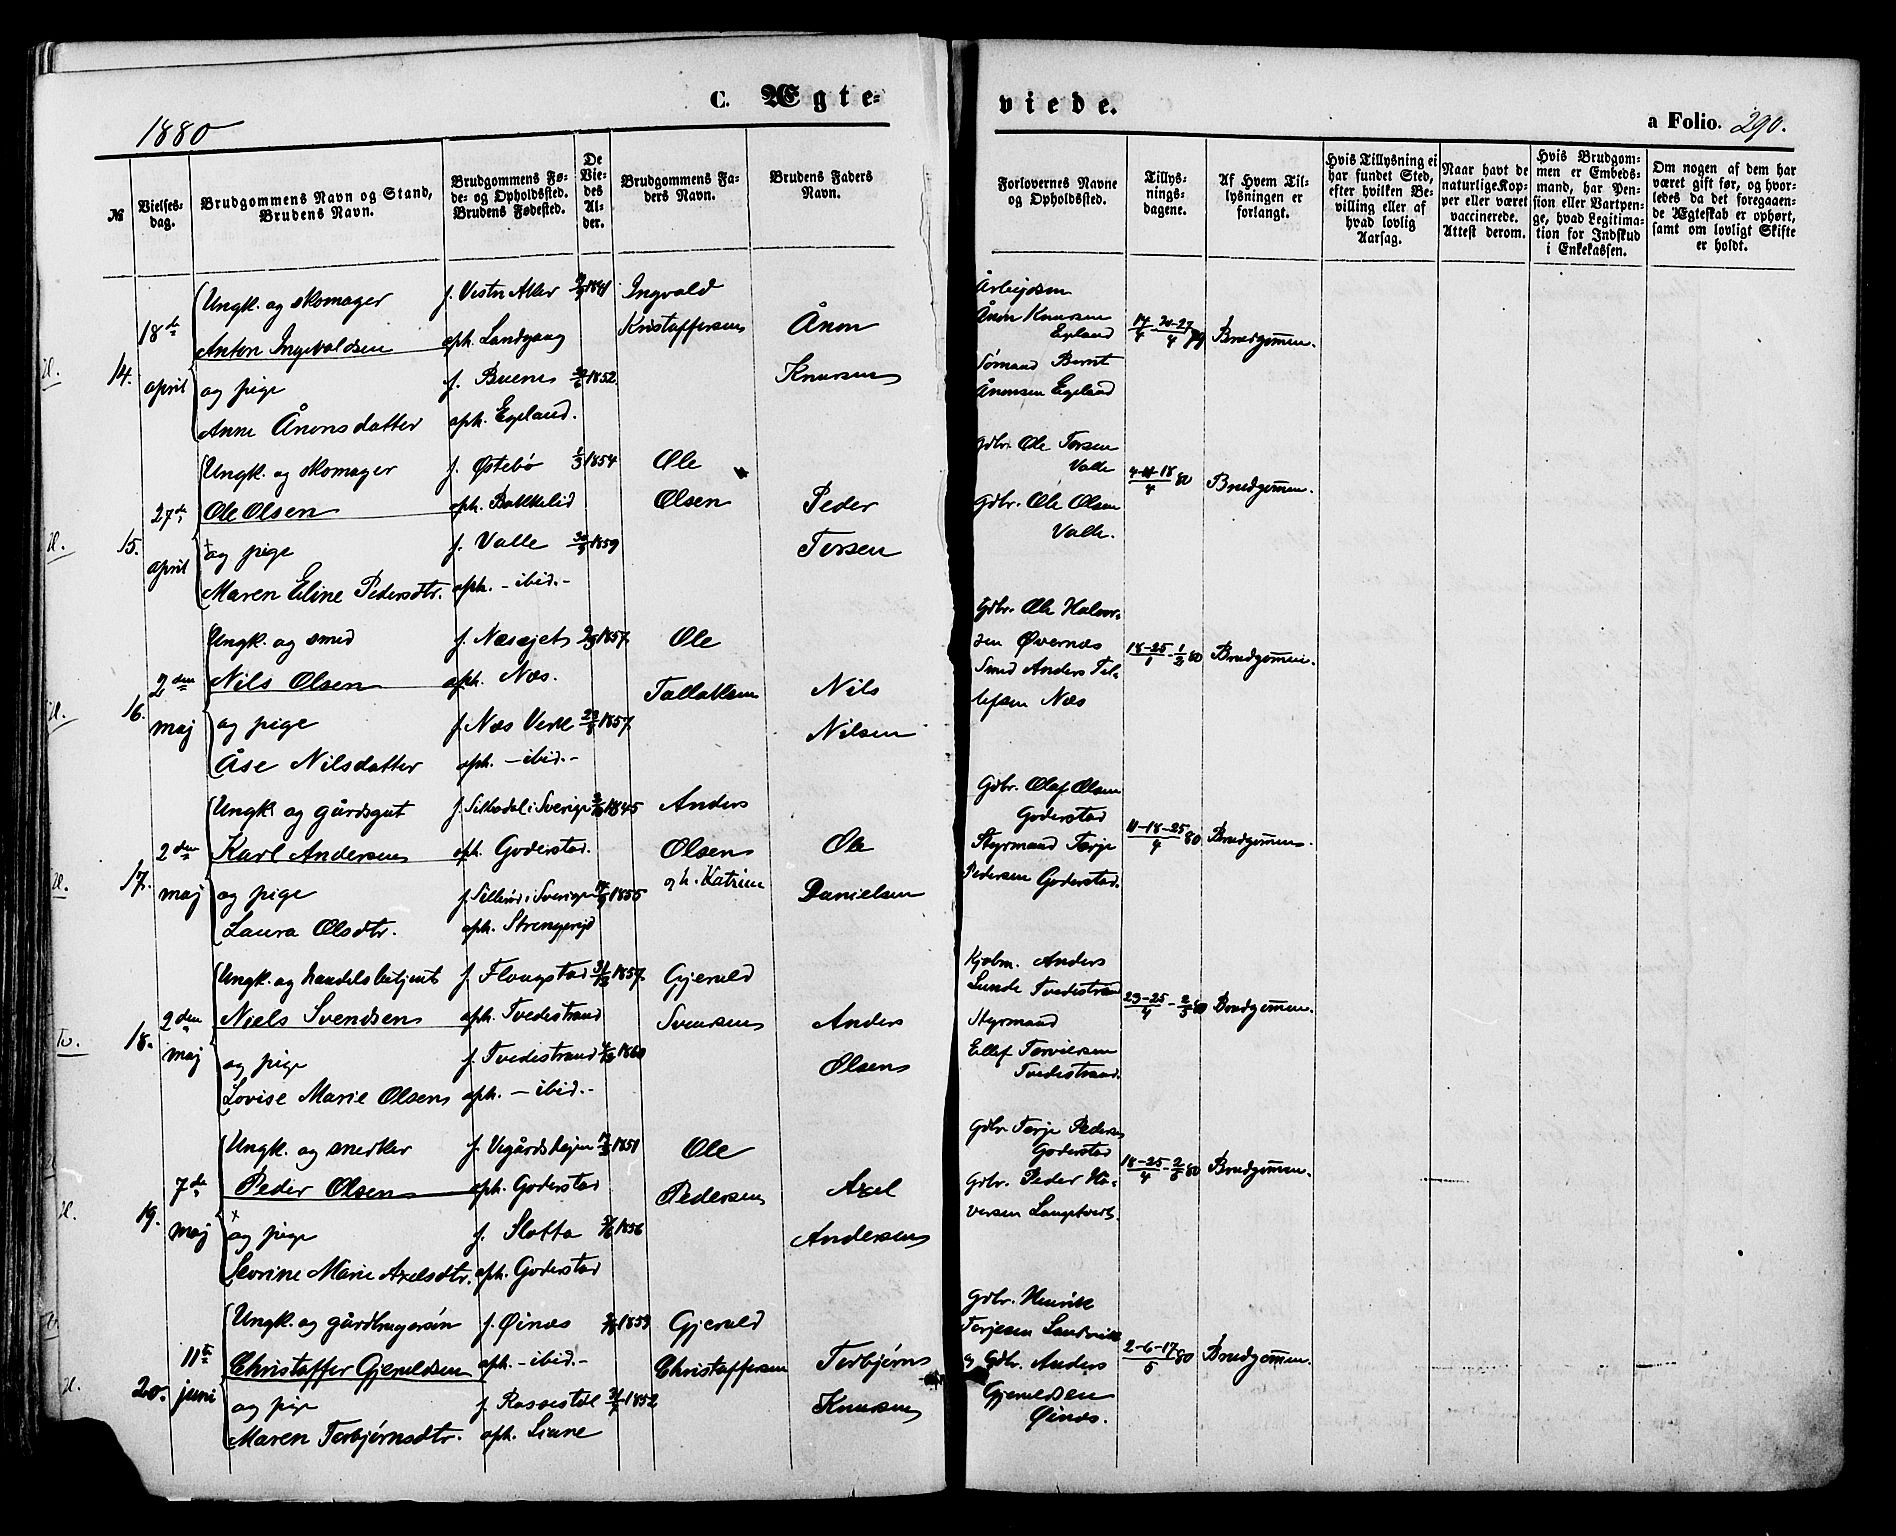 C. Ægte-
viede.
1880
a Folio. 290.
№
Vielses-
dag.
Brudgommens Navn og Stand,
Brudens Navn.
Brudgommens Fø-
de- og Opholdssted.
Brudens Fødested.
De
Vie-
des
Al-
der.
Brudgommens Fa-
ders Navn.
Brudens Faders
Navn.
Forlovernes Navne
og Opholdssted.
Tillys-
nings-
dagene.
Af Hvem Til-
lysningen er
forlangt.
Hvis Tillysning ei
har fundet Sted,
efter hvilken Be-
villing eller af
hvad lovlig
Aarsag.
Naar havt de
naturlige Kop-
per eller været
vaccinerede.
Attest derom.
Hvis Brudgom-
men er Embeds-
mand, har Pen-
sion eller Vartpen-
ge, hvad Legitima-
tion for Indskud
i Enkekassen.
Om nogen af dem har
været gift før, og hvor-
ledes da det foregaaen-
de Ægteskab er ophørt,
samt om lovligt Skifte
er holdt.
14.
18de
april
Ungk. og skomager
Anton Ingevaldsen
og pige
Anne Ånonsdatter
f. Vestre
oph. Landgang
f. Buene
oph. Egeland.
1841
1852.
Ingvald
Kristaffersen
Ånon
Knutsen
Arbejdsm
Ånon Knutsen
Egeland
Sømand Bernt
Ånonsen Egeland
Brudgommen.
15.
27de
april
Ungk. og skomager
Ole Olsen
og pige
Maren Eline Pedersdtr.
f. Østebø
oph. Bakkelid
f. Valle
oph. - ibid. -
1854
1859
Ole
Olsen
Peder
Torsen
Gdbr. Ole Torsen
Valle
Gdbr. Ole Olsen
Valle.
4-11-18/4 80
Brudgommen.
16.
2den
maj
Ungk. og smed
Nils Olsen
og pige
Åse Nilsdatter
f. Næsejet
oph. Næs.
f. Næs Verk
oph. - ibid. -
1857.
1857.
Ole
Tallaksen
Nils
Nilsen
Gdbr. Ole Halvor-
sen Øvernæs
Smed Anders Til-
lefsen Næs
Brudgommen.
17.
2den
maj
Ungk. og gårdsgut
Karl Andersen
og pige
Laura Olsdtr.
f. Silbodal i Sverige
oph. Goderstad.
f. i Sverige
oph. Strengereid
1845
1855
Anders
Olsen
og h. Katrine
Ole
Danielsen
Gdbr. Olaf Olsen
Goderstad
Styrmand Tarje
Pedersen Goderstad.
11-18-25/4 80
Brudgommen.
18.
2den
maj
Ungk. og handelsbetjent
Niels Svendsen
og pige
Lovise Marie Olsen
f. Flougstad
oph. Tvedestrand
f. Tvedestrand
oph. - ibid. -
1857.
1860
Gjeruld
Svensen
Anders
Olsen
Kjøbm. Anders
Lunde Tvedestrand
Styrmand
Ellef
Tvedestrand.
Brudgommen.
19.
7de
maj
Ungk. og snedker
Peder Olsen
og pige
Severine Marie Axelsdtr.
f. Vegårdshejen
oph. Goderstad
f. Slotta
oph. Goderstad
1851
1856
Ole
Pedersen
Axel
Andersen
Gdbr Tarje Pedersen
Goderstad
Gdbr. Peder
versen
Brudgommen.
20.
11te
juni
Ungk. og gårdbrugersøn
Christaffer Gjeruldsen
og pige
Maren Torbjørnsdtr.
f. Øinæs
oph. - ibid. -
f.
oph. Liane
1859
1852
Gjeruld
Christaffersen
Torbjørn
Knutsen
Gdbr. Henrik
Terjesen Sandvik
og Gdbr. Anders
Gjeruldsen
Øinæs.
Brudgommen.